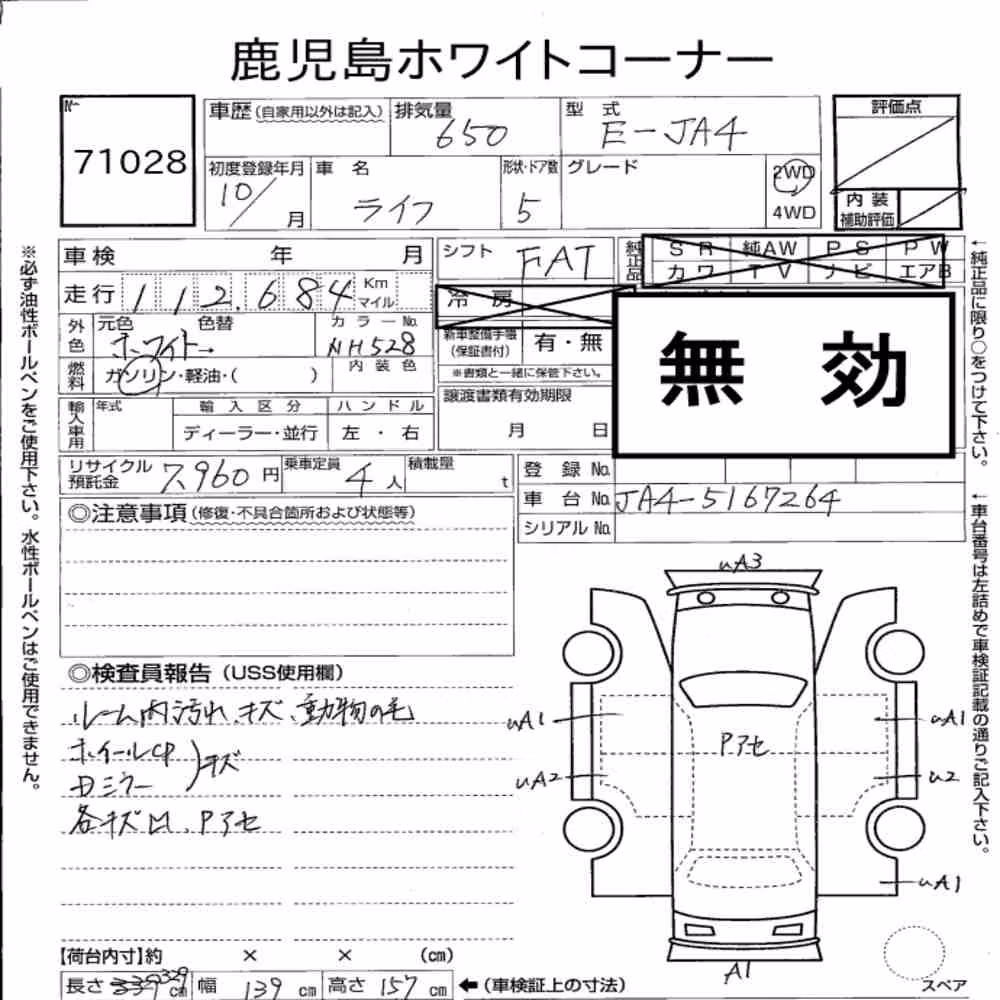 鹿児島ホワイトコーナー
No. 71028
車歴(自家用以外は記入) 排気量 650 型式 E-JA4
評価点
初度登録年月 10/ 月 車名 ライフ 形状・ドア数 5 グレード 2WD 4WD
内装補助評価
車検 年 月 シフト FAT 純正品 SR 純AW PS PW
カワ TV ナビ エアB
走行 112,684 Km マイル 冷房
外色 元色 ホワイト→ 色替 カラーNo. NH528 新車整備手帳(保証書付) 有・無
内装色
※書類と一緒に保管下さい。
燃料 ガソリン・軽油・( )
無効
輸入車用 年式 輸入区分 ハンドル 譲渡書類有効期限
ディーラー・並行 左・右 月 日
リサイクル預託金 7,960円 乗車定員 4人 積載量 t 登録No.
車台No. JA4-5167264
シリアルNo.
◎注意事項(修復・不具合箇所および状態等)
◎検査員報告(USS使用欄)
ルーム内汚れ、キズ、動物の毛
ホイールCP
Dミラー
)キズ
各キズ凹、Pアセ
uA3
uA1
uA1
Pアセ
uA2
u2
uA1
A1
【荷台内寸】約 × × (cm)
長さ 339 329 cm 幅 139 cm 高さ 157 cm ←(車検証上の寸法)
スペア
※必ず油性ボールペンをご使用下さい。水性ボールペンはご使用できません。
←純正品に限り○をつけて下さい。
←車台番号は左詰めで車検証記載の通りご記入下さい。